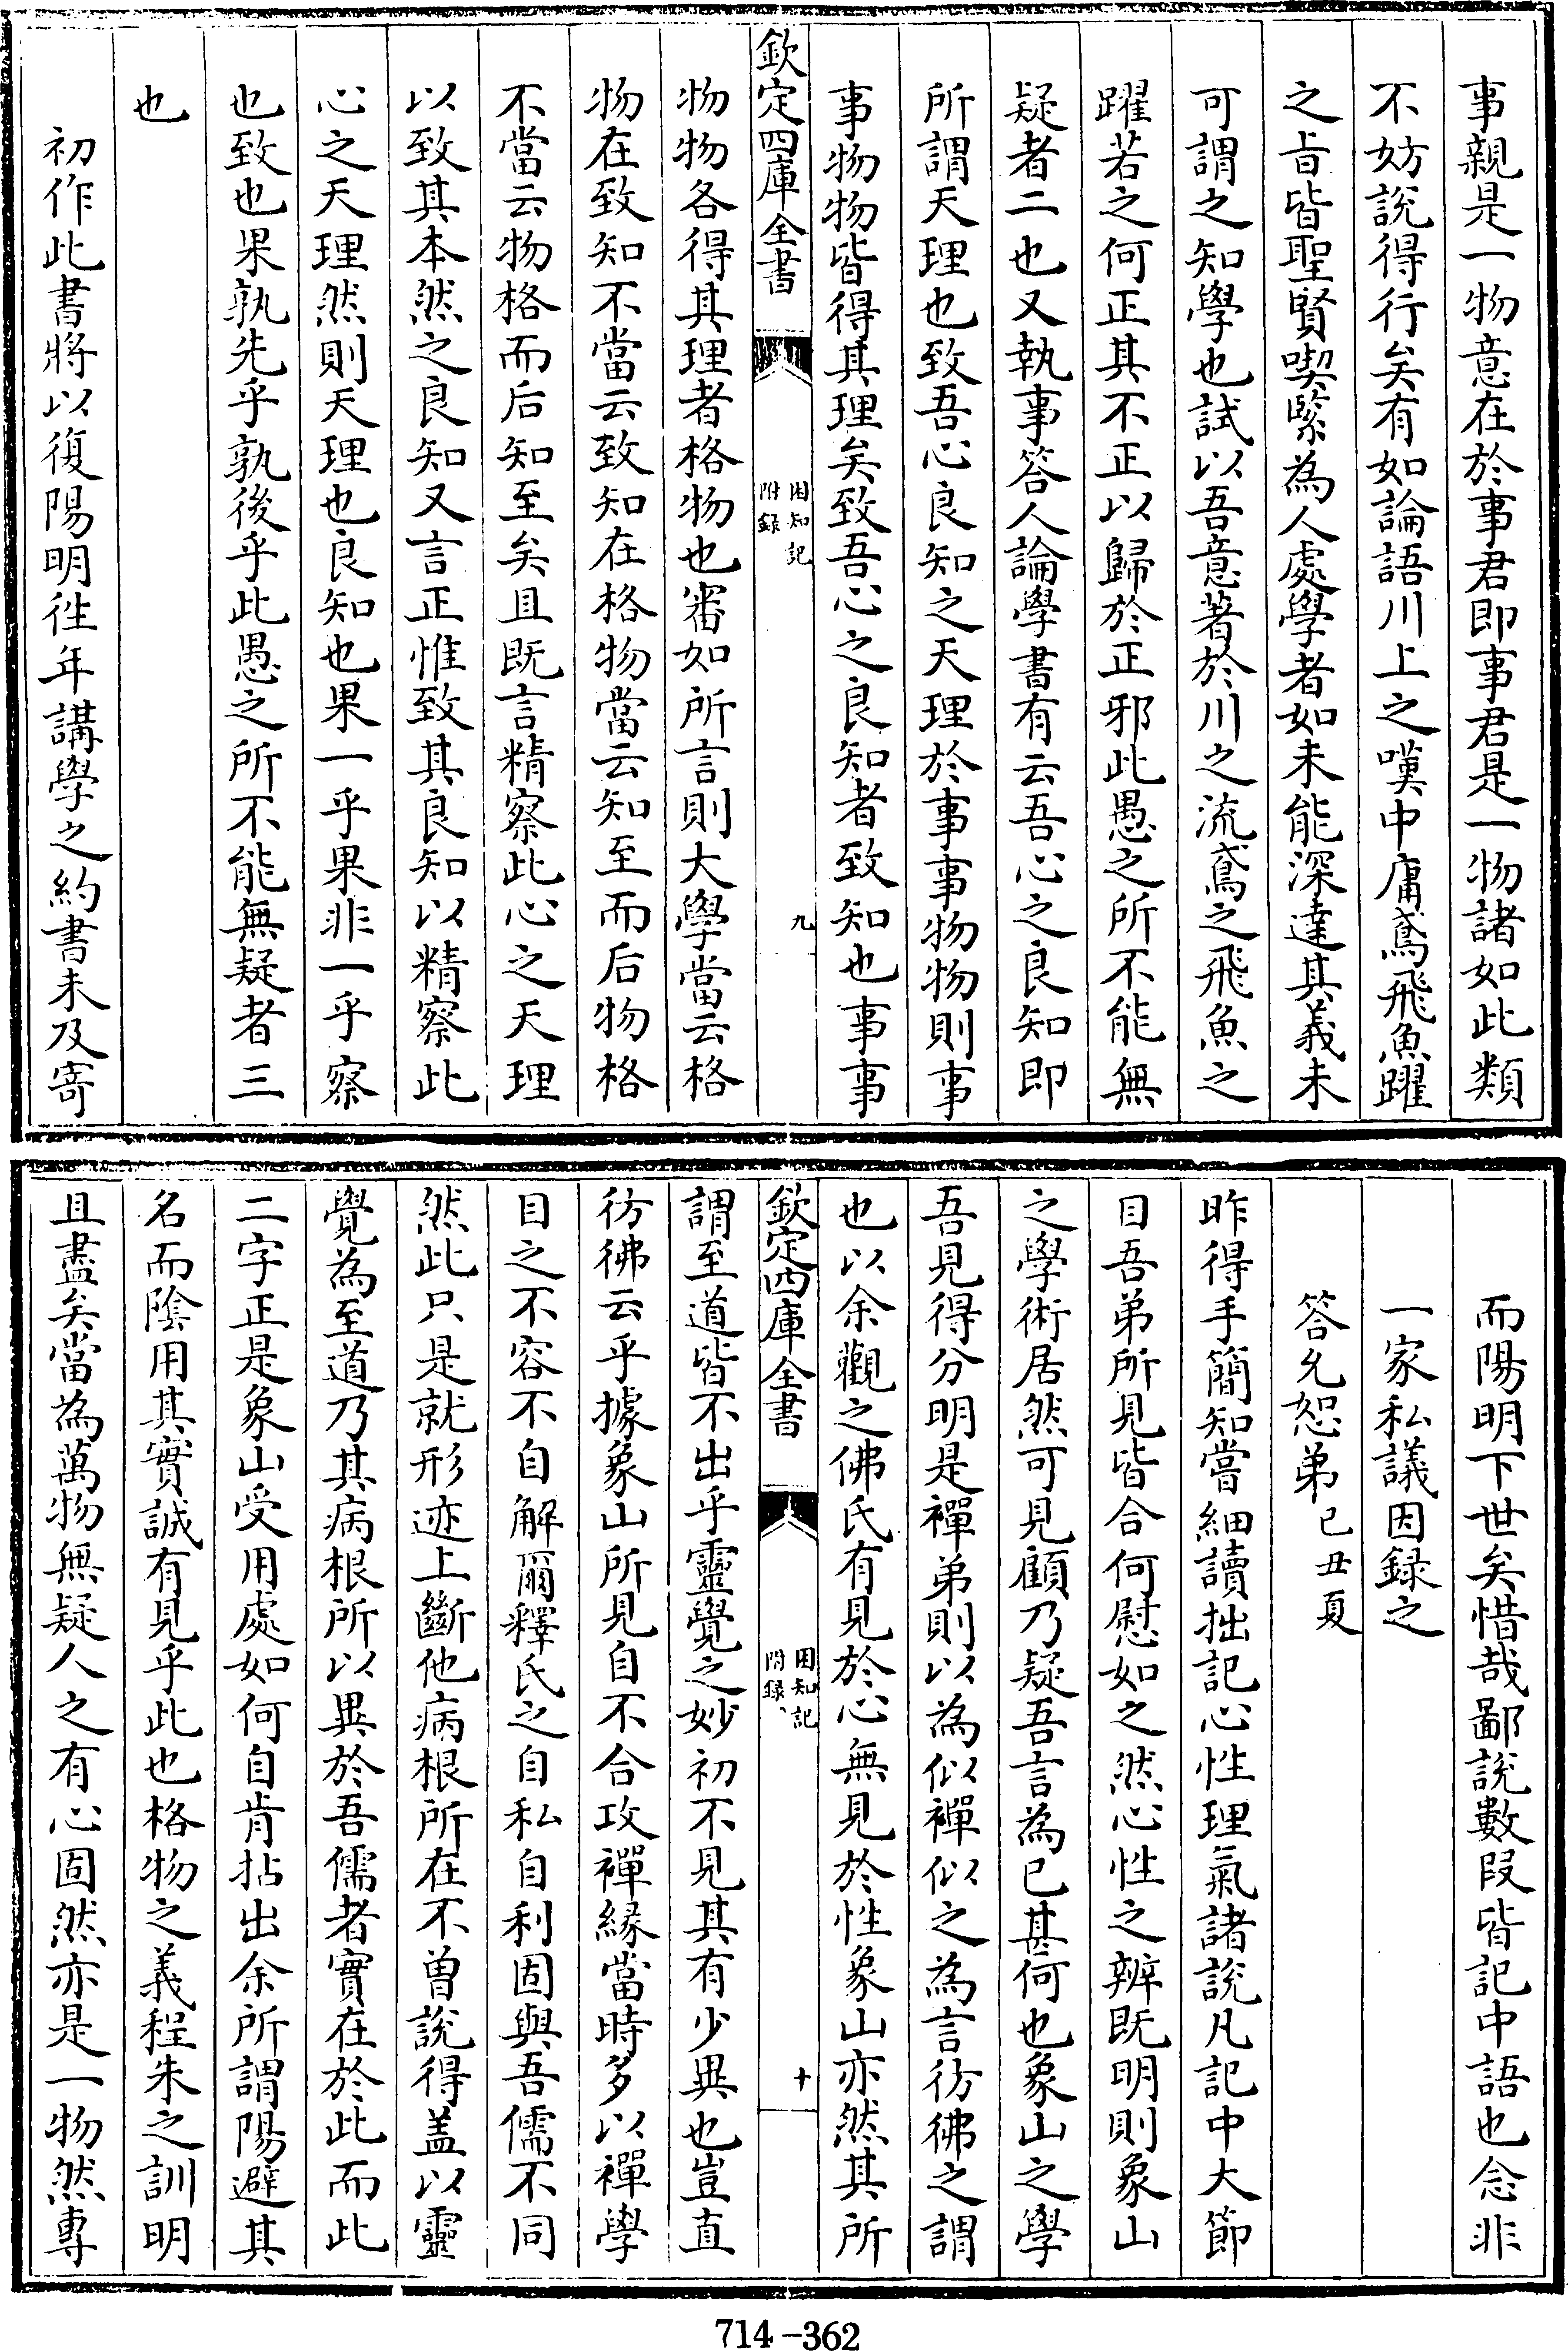 事親是一物意在於事君即事君是一物諸如此類
不妨說得行矣有如論語川上之嘆中庸鳶飛魚躍
之㫖皆聖賢喫緊為人處學者如未能深達其義未
可謂之知學也試以吾意著於川之流鳶之飛魚之
躍若之何正其不正以歸於正邪此愚之所不能無
疑者二也又執事答人論學書有云吾心之良知即
所謂天理也致吾心良知之天理於事事物物則事
事物物皆得其理矣致吾心之良知者致知也事事
欽定四庫全書
困知記
附録
九
物物各得其理者格物也審如所言則大學當云格
物在致知不當云致知在格物當云知至而后物格
不當云物格而后知至矣且既言精察此心之天理
以致其本然之良知又言正惟致其良知以精察此
心之天理然則天理也良知也果一乎果非一乎察
也致也果孰先乎孰後乎此愚之所不能無疑者三
也
初作此書將以復陽明徃年講學之約書未及寄
而陽明下世矣惜哉鄙說數段皆記中語也念非
一家私議因録之
答允恕弟己丑夏
昨得手簡知嘗細讀拙記心性理氣諸說凡記中大節
目吾弟所見皆合何慰如之然心性之辨既明則象山
之學術居然可見顧乃疑吾言為已甚何也象山之學
吾見得分明是禪弟則以為似禪似之為言彷彿之謂
也以余觀之佛氏有見於心無見於性象山亦然其所
欽定四庫全書
困知記
附録
十
謂至道皆不出乎靈覺之妙初不見其有少異也豈直
彷彿云乎據象山所見自不合攻禪緣當時多以禪學
目之不容不自解爾釋氏之自私自利固與吾儒不同
然此只是就形迹上斷他病根所在不曽說得盖以靈
覺為至道乃其病根所以異於吾儒者實在於此而此
二字正是象山受用處如何自肯拈出余所謂陽避其
名而隂用其實誠有見乎此也格物之義程朱之訓明
且盡矣當為萬物無疑人之有心固然亦是一物然專
714-362